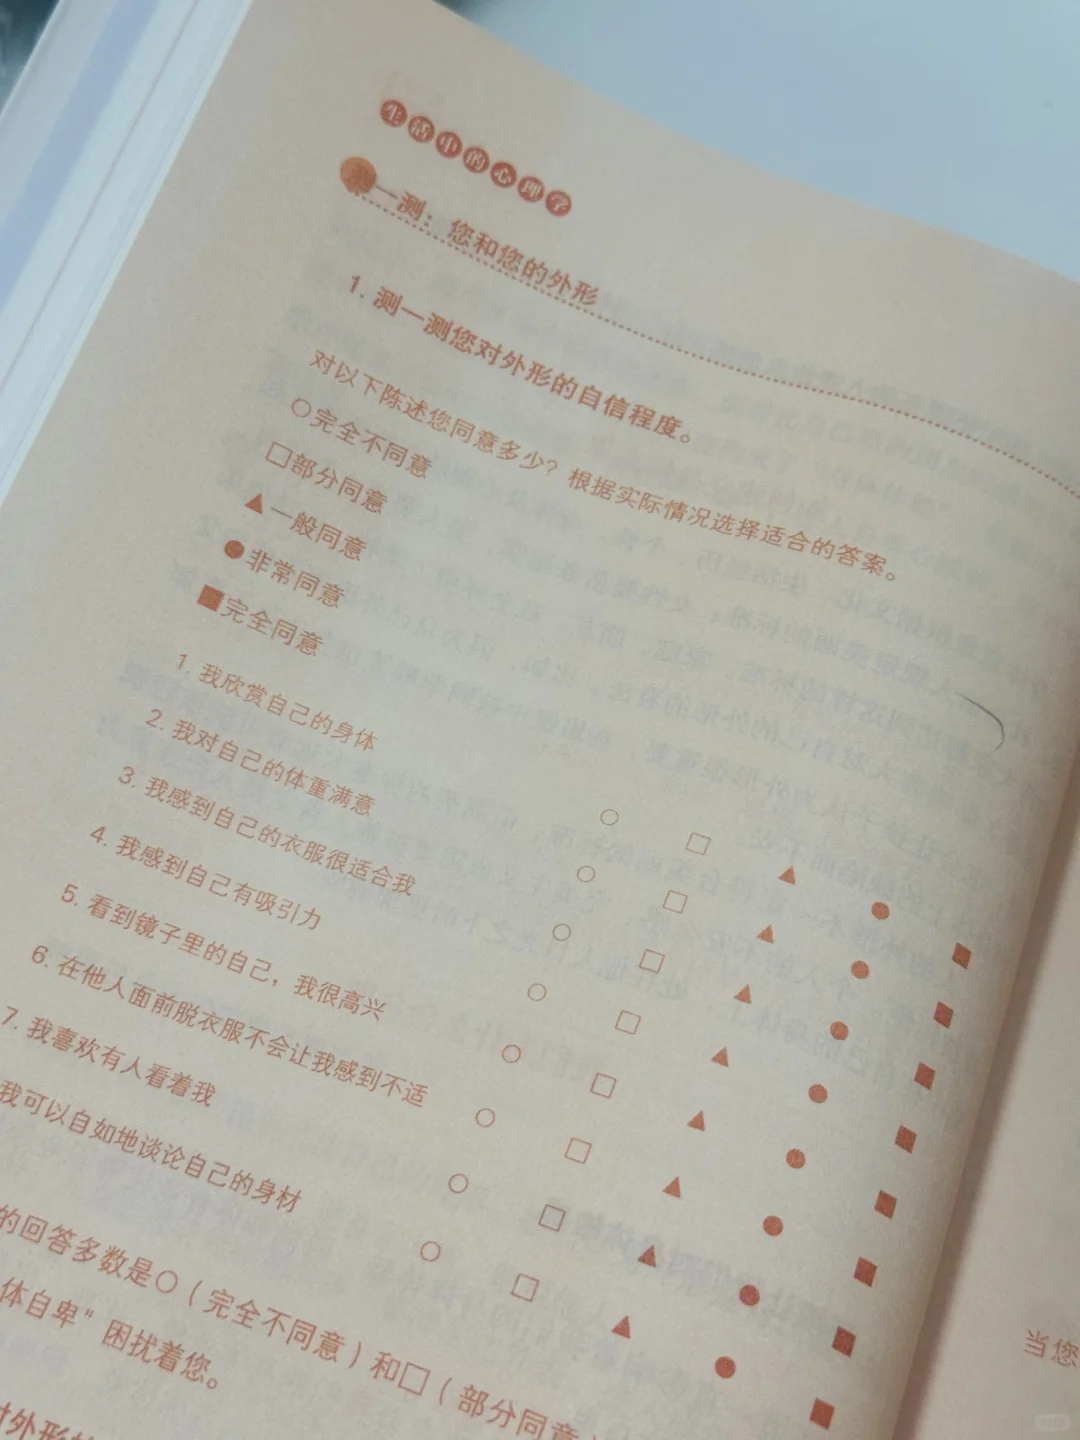 生活中的心理学
一测：您和您的外形
1. 测一测您对外形的自信程度。
对以下陈述您同意多少？根据实际情况选择适合的答案。
○完全不同意
□部分同意
▲一般同意
●非常同意
■完全同意
1. 我欣赏自己的身体 ○ □ ▲ ● ■
2. 我对自己的体重满意 ○ □ ▲ ● ■
3. 我感到自己的衣服很适合我 ○ □ ▲ ● ■
4. 我感到自己有吸引力 ○ □ ▲ ● ■
5. 看到镜子里的自己，我很高兴 ○ □ ▲ ● ■
6. 在他人面前脱衣服不会让我感到不适 ○ □ ▲ ● ■
7. 我喜欢有人看着我 ○ □ ▲ ● ■
我可以自如地谈论自己的身材 ○ □ ▲ ● ■
的回答多数是○（完全不同意）和□（部分同意）
体自卑”困扰着您。
对外形的
当您